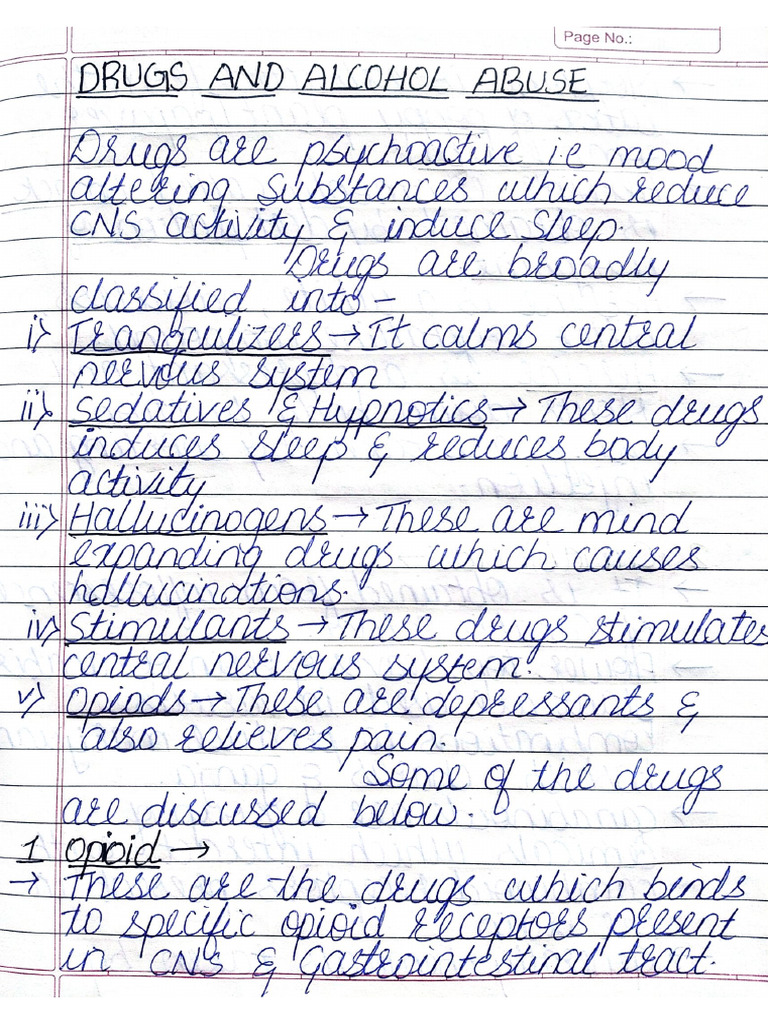 Page No.:
DRUGS AND ALCOHOL ABUSE
Drugs are psychoactive ie mood
altering substances which reduce
CNS activity & induce sleep.
Drugs are broadly
classified into -
i) Tranquilizers → It calms central
nervous system
ii) Sedatives & Hypnotics → These drugs
induces sleep & reduces body
activity
iii) Hallucinogens → These are mind
expanding drugs which causes
hallucinations.
iv) Stimulants → These drugs stimulates
central nervous system.
v) Opiods → These are depressants &
also relieves pain.
Some of the drugs
are discussed below.
1 Opioid →
→ These are the drugs which binds
to specific opioid receptors present
in CNS & Gastrointestinal tract.